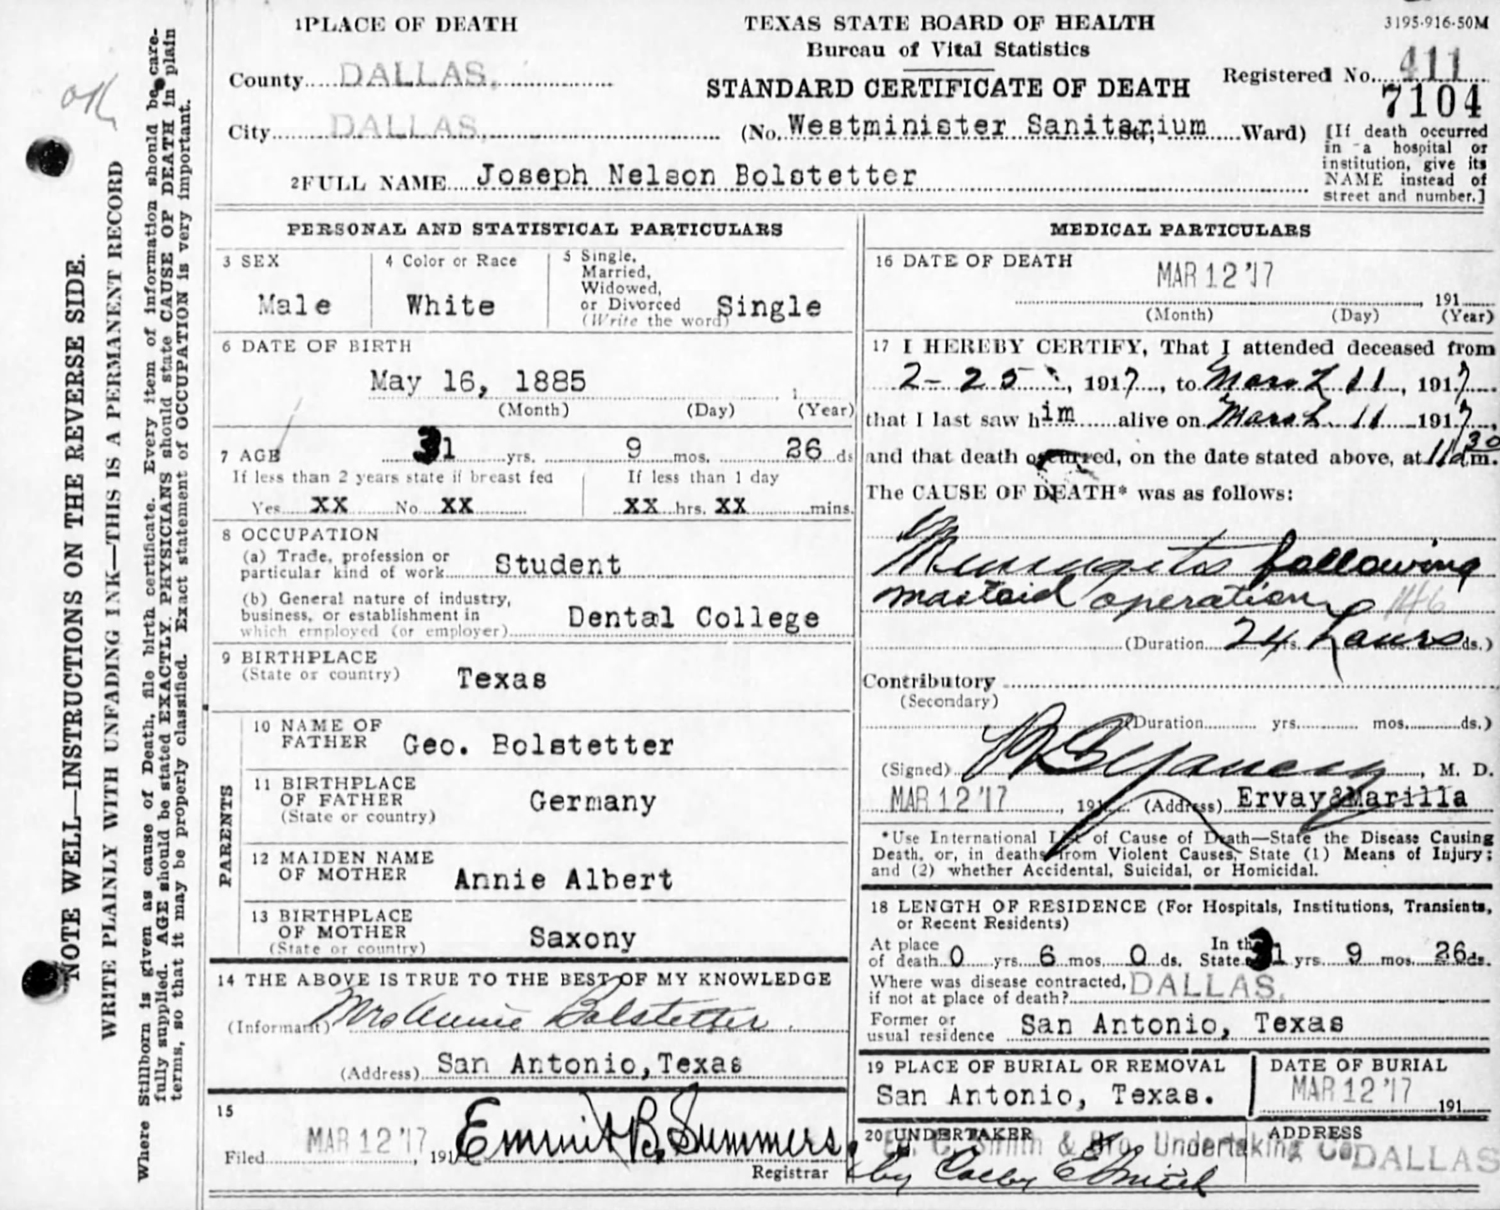 OK
NOTE WELL—INSTRUCTIONS ON THE REVERSE SIDE.
WRITE PLAINLY WITH UNFADING INK—THIS IS A PERMANENT RECORD
Where Stillborn is given as cause of Death, file birth certificate. Every item of information should be care-
fully supplied. AGE should be stated EXACTLY. PHYSICIANS should state CAUSE OF DEATH in plain
terms, so that it may be properly classified. Exact statement of OCCUPATION is very important.
1 PLACE OF DEATH
TEXAS STATE BOARD OF HEALTH
3195-916-50M
Bureau of Vital Statistics
County DALLAS.
STANDARD CERTIFICATE OF DEATH
Registered No. 411
7104
City DALLAS (No. Westminister Sanitarium St; Ward)
[If death occurred
in a hospital or
institution, give its
NAME instead of
street and number.]
2 FULL NAME Joseph Nelson Bolstetter
PERSONAL AND STATISTICAL PARTICULARS
3 SEX
Male
4 Color or Race
White
5 Single,
Married,
Widowed,
or Divorced
(Write the word)
Single
6 DATE OF BIRTH
May 16, 1885
(Month) (Day) (Year)
7 AGE 31 yrs. 9 mos. 26 ds
If less than 2 years state if breast fed
Yes XX No XX
If less than 1 day
XX hrs. XX mins.
8 OCCUPATION
(a) Trade, profession or
particular kind of work Student
(b) General nature of industry,
business, or establishment in
which employed (or employer) Dental College
9 BIRTHPLACE
(State or country) Texas
PARENTS
10 NAME OF
FATHER Geo. Bolstetter
11 BIRTHPLACE
OF FATHER
(State or country) Germany
12 MAIDEN NAME
OF MOTHER Annie Albert
13 BIRTHPLACE
OF MOTHER
(State or country) Saxony
14 THE ABOVE IS TRUE TO THE BEST OF MY KNOWLEDGE
(Informant) Mrs Annie Bolstetter.
(Address) San Antonio, Texas
15
Filed MAR 12 '17, 191 Emmit B. Summers
Registrar
MEDICAL PARTICULARS
16 DATE OF DEATH
MAR 12 '17
, 191
(Month) (Day) (Year)
17 I HEREBY CERTIFY, That I attended deceased from
2-25, 1917, to March 11, 1917
that I last saw him alive on March 11 1917,
and that death occurred, on the date stated above, at 11 30 a m.
The CAUSE OF DEATH* was as follows:
Meningitis following
mastoid operation 146
(Duration 24 yrs. hours ds.)
Contributory
(Secondary)
(Duration yrs. mos. ds.)
(Signed) Yancey, M. D.
MAR 12 '17, 191 (Address) Ervay&Marilla
*Use International List of Cause of Death—State the Disease Causing
Death, or, in deaths from Violent Causes, State (1) Means of Injury;
and (2) whether Accidental, Suicidal, or Homicidal.
18 LENGTH OF RESIDENCE (For Hospitals, Institutions, Transients,
or Recent Residents)
At place
of death 0 yrs. 6 mos. 0 ds. In the
State 31 yrs. 9 mos. 26 ds.
Where was disease contracted,
if not at place of death? DALLAS.
Former or
usual residence San Antonio, Texas
19 PLACE OF BURIAL OR REMOVAL
San Antonio, Texas.
DATE OF BURIAL
MAR 12 '17
191
20 UNDERTAKER
Smith & Bro. Undertaking Co
by Colby E Smith
ADDRESS
DALLAS